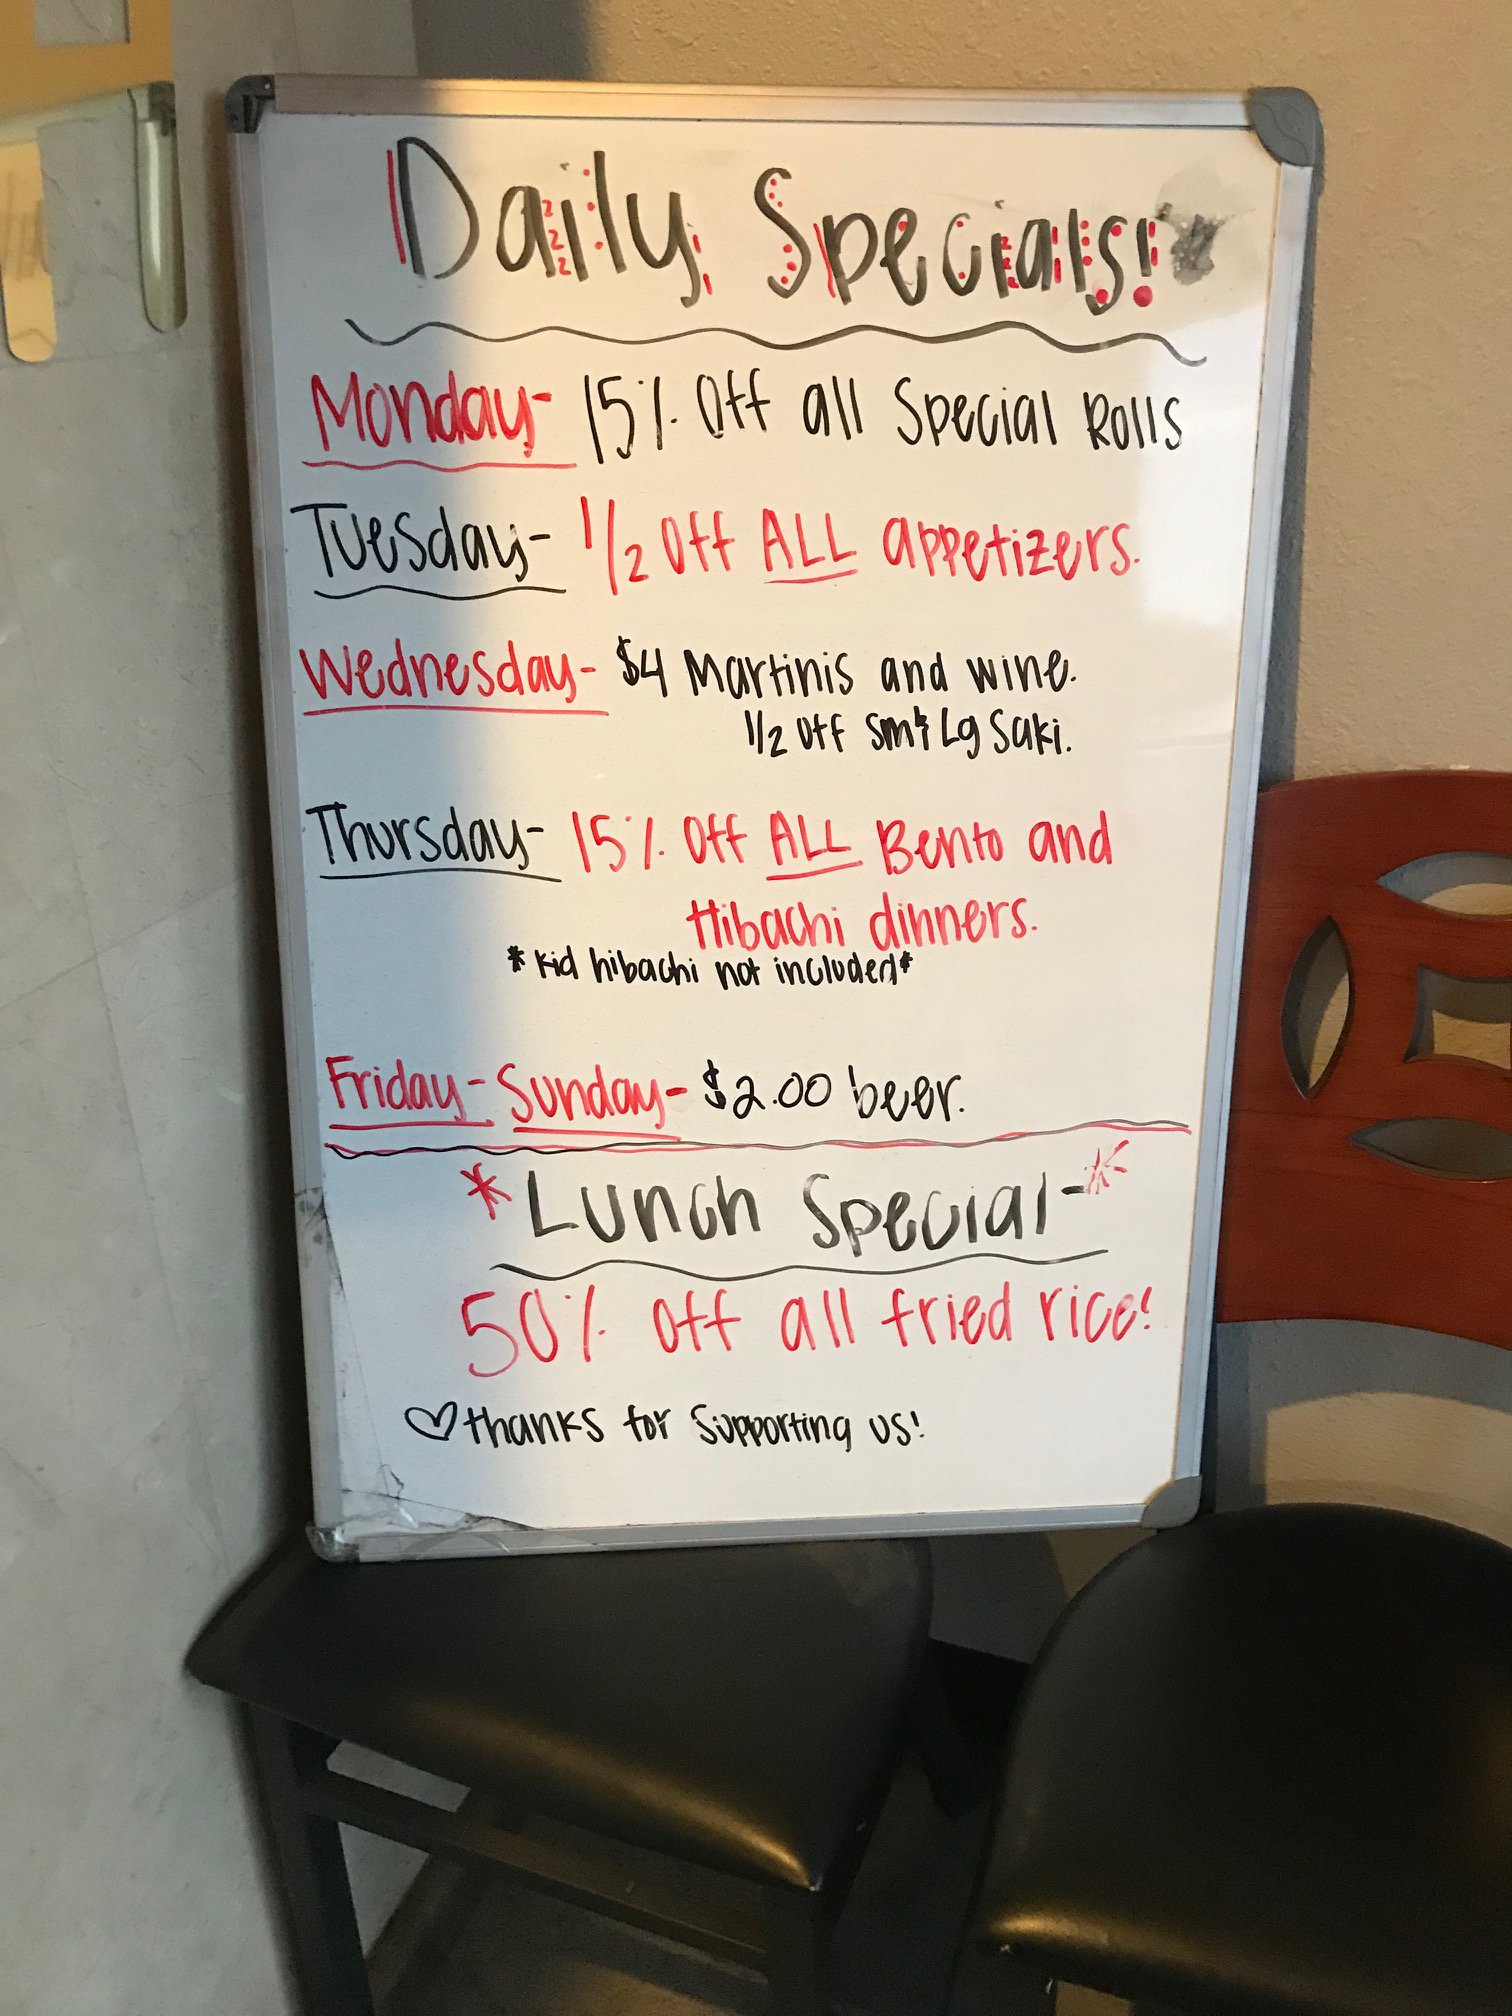 Daily Specials!
Monday- 15% Off all Special Rolls
Tuesday- 1/2 Off ALL appetizers.
Wednesday- $4 Martinis and wine.
1/2 Off Sm & Lg Saki.
Thursday- 15% Off ALL Bento and
Hibachi dinners.
*Kid hibachi not included*
Friday- Sunday- $2.00 beer.
*Lunch Special-*
50% Off all fried rice!
♡thanks for supporting us!